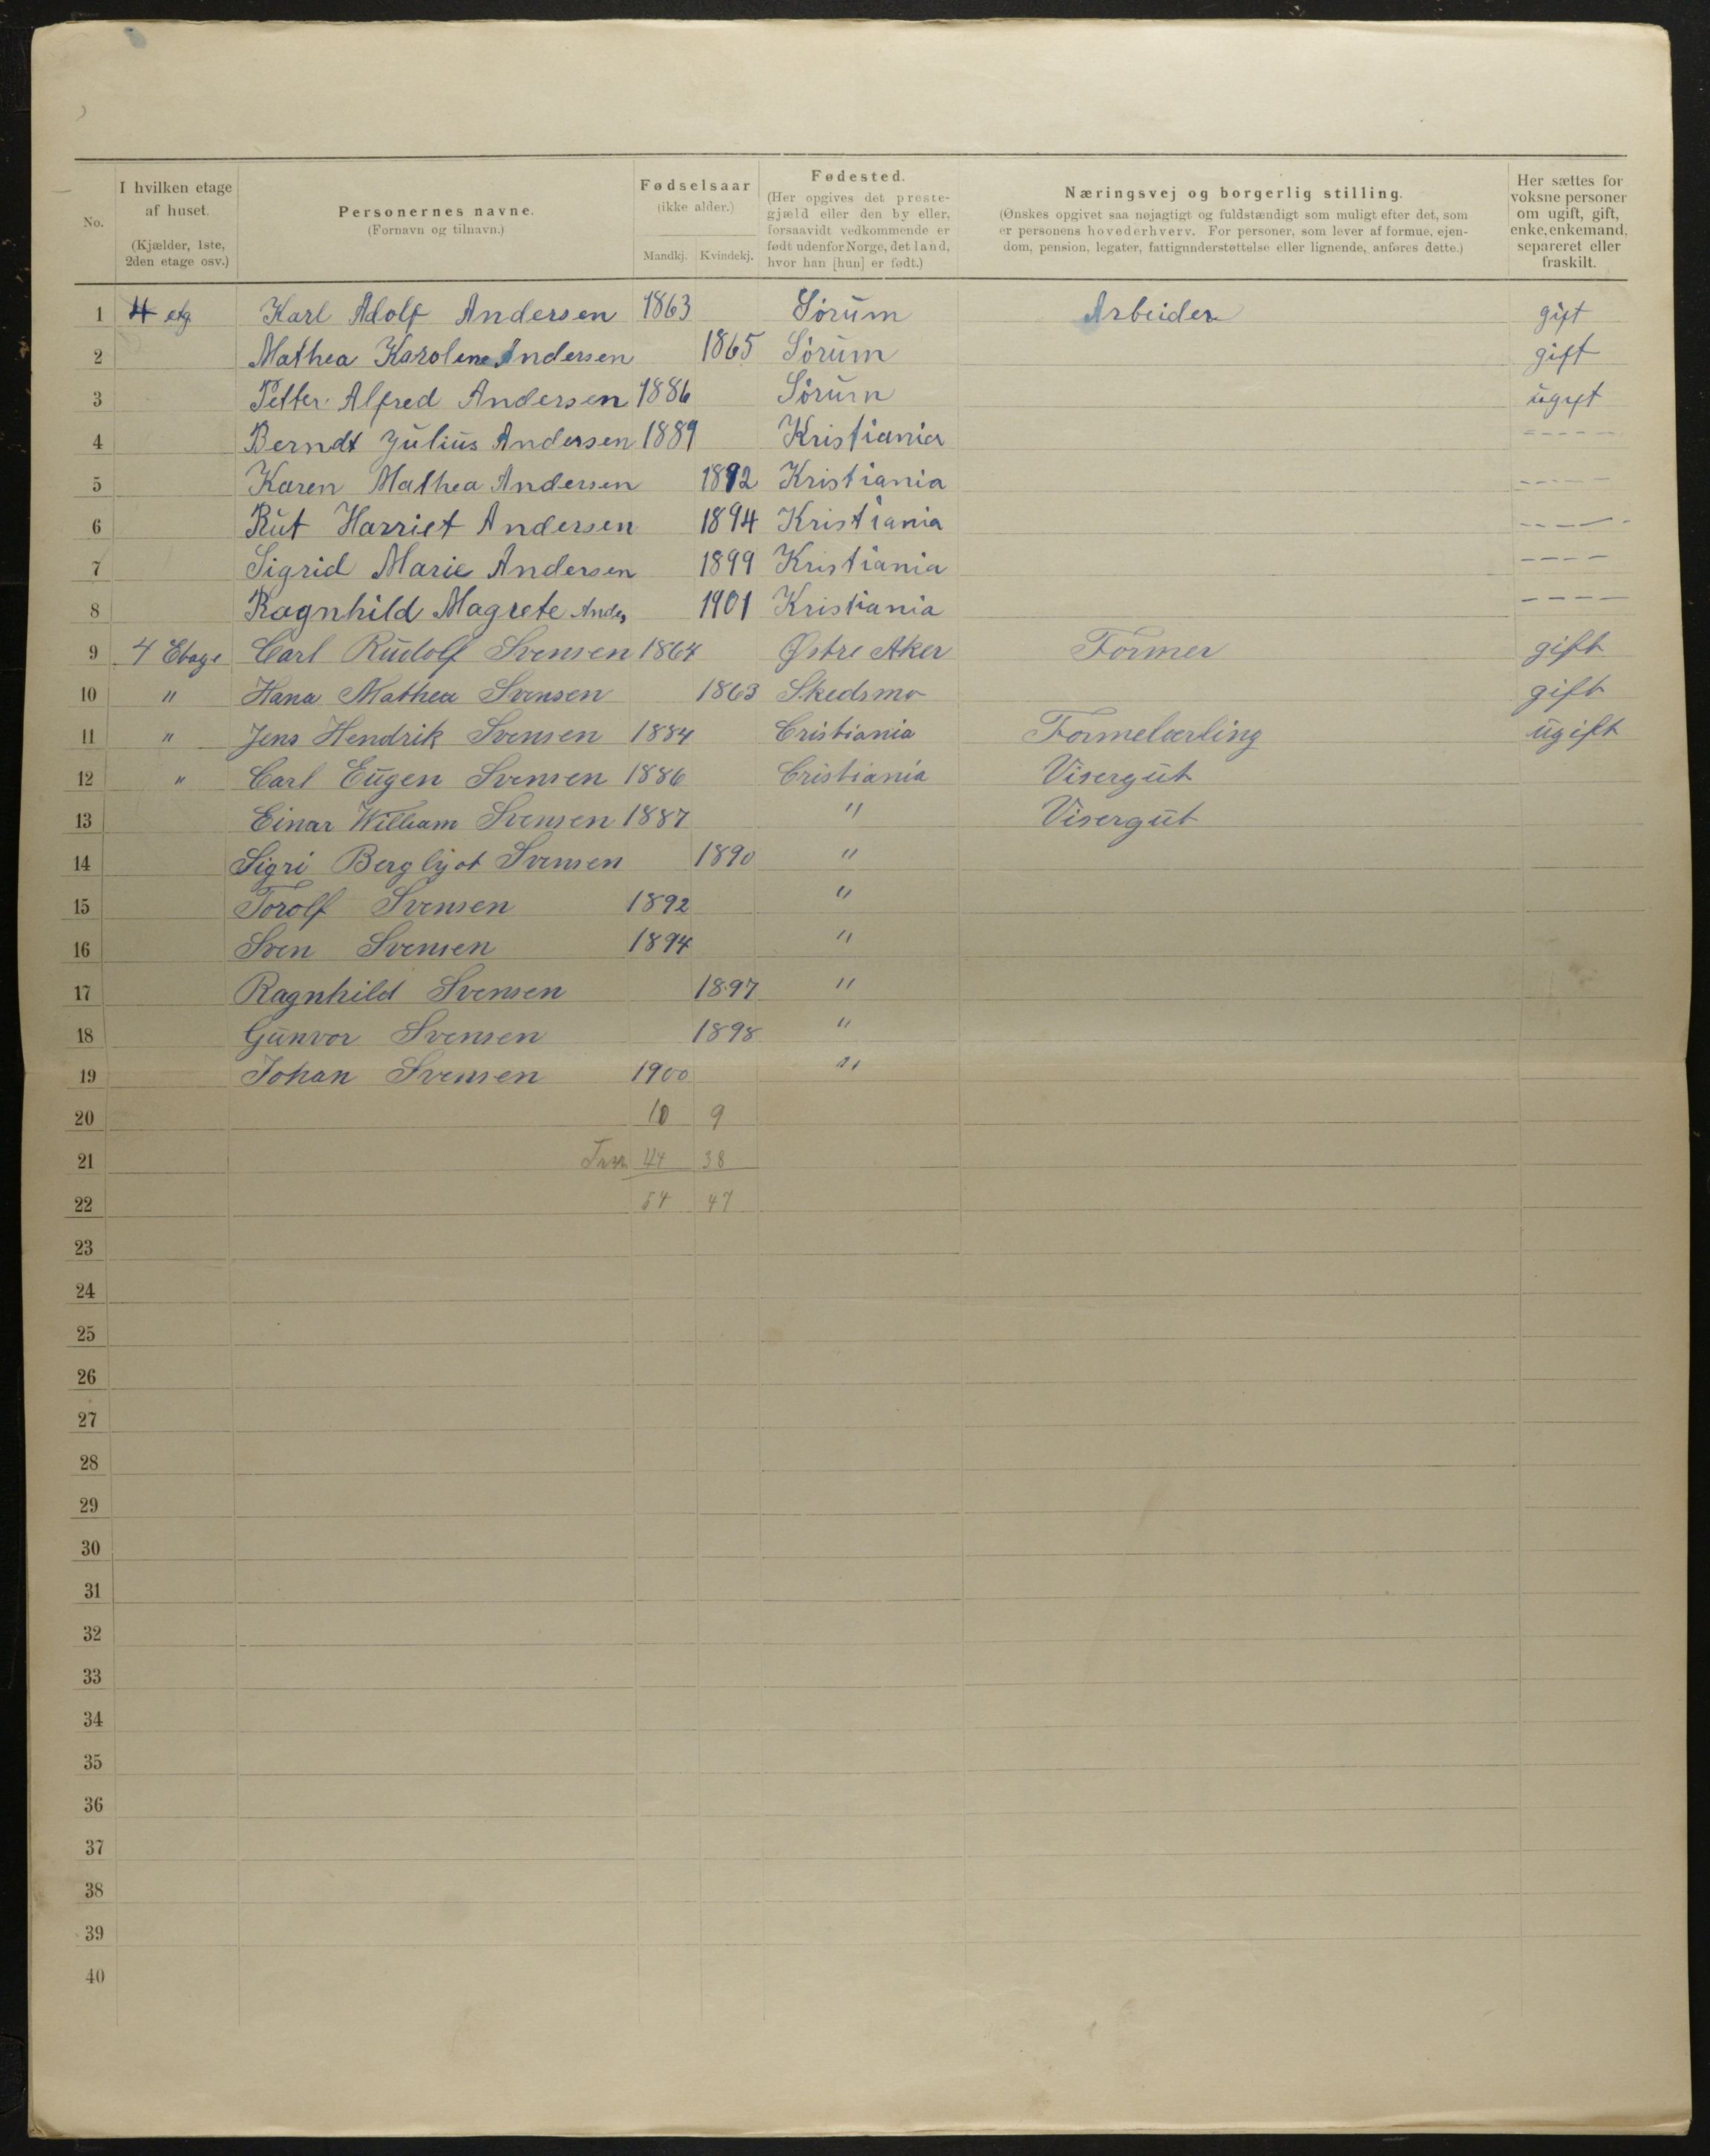 No.
I hvilken etage af huset. (Kjælder, 1ste, 2den etage osv.)
Personernes navne. (Fornavn og tilnavn.)
Fødselsaar (ikke alder.) Mandkj. Kvindekj.
Fødested. (Her opgives det prestegjæld eller den by eller, forsaavidt vedkommende er født udenfor Norge, det land, hvor han [hun] er født.)
Næringsvej og borgerlig stilling. (Ønskes opgivet saa nøjagtigt og fuldstændigt som muligt efter det, som er personens hovederhverv. For personer, som lever af formue, ejendom, pension, legater, fattigunderstøttelse eller lignende, anføres dette.)
Her sættes for voksne personer om ugift, gift, enke, enkemand, separeret eller fraskilt.
1 4 etg. Karl Adolf Andersen 1863 Sörum Arbeider gift
2 Mathea Karolene Andersen 1865 Sörum gift
3 Petter Alfred Andersen 1886 Sörum ugift
4 Berndt Julius Andersen 1889 Kristiania -----
5 Karen Mathea Andersen 1892 Kristiania -----
6 Rut Harriet Andersen 1894 Kristiania -----
7 Sigrid Marie Andersen 1899 Kristiania ----
8 Ragnhild Magrete Anders 1901 Kristiania ----
9 4 Etage Carl Rudolf Svensen 1864 Østre Aker Former gift
10 " Hana Mathea Svensen 1863 Skedsmo gift
11 " Jens Hendrik Svensen 1884 Cristiania Formelærling ugift
12 " Carl Eugen Svensen 1886 Cristiania Visergut
13 Einar William Svensen 1887 " Visergut
14 Sigri Bergljot Svensen 1890 "
15 Torolf Svensen 1892 "
16 Sven Svensen 1894 "
17 Ragnhild Svensen 1897 "
18 Gunvor Svensen 1898 "
19 Johan Svensen 1900 "
20 10 9
21 44 38
22 54 47
23
24
25
26
27
28
29
30
31
32
33
34
35
36
37
38
39
40